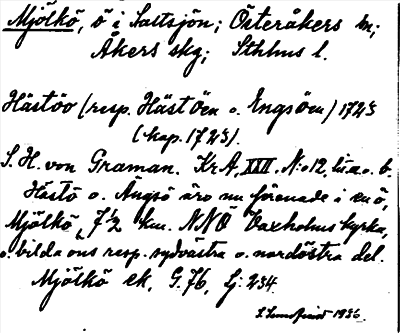 Mjölkö, ö i Saltsjön; Österåkers sn;
Åkers skg; Sthlms l.
Hästöö (resp. Hästöen o. Engsöen) 1723
(kap. 1723).
S. H. von Graman. KrA, XXII. N:o 12 lit. a o. b.
Hästö o. Ängsö äro nu förenade i en ö,
Mjölkö, 7½ km. NNÖ Vaxholms kyrka,
o. bilda öns resp. sydvästra o. nordöstra del.
Mjölkö ek, G. 76, Lj: 234.
1936.